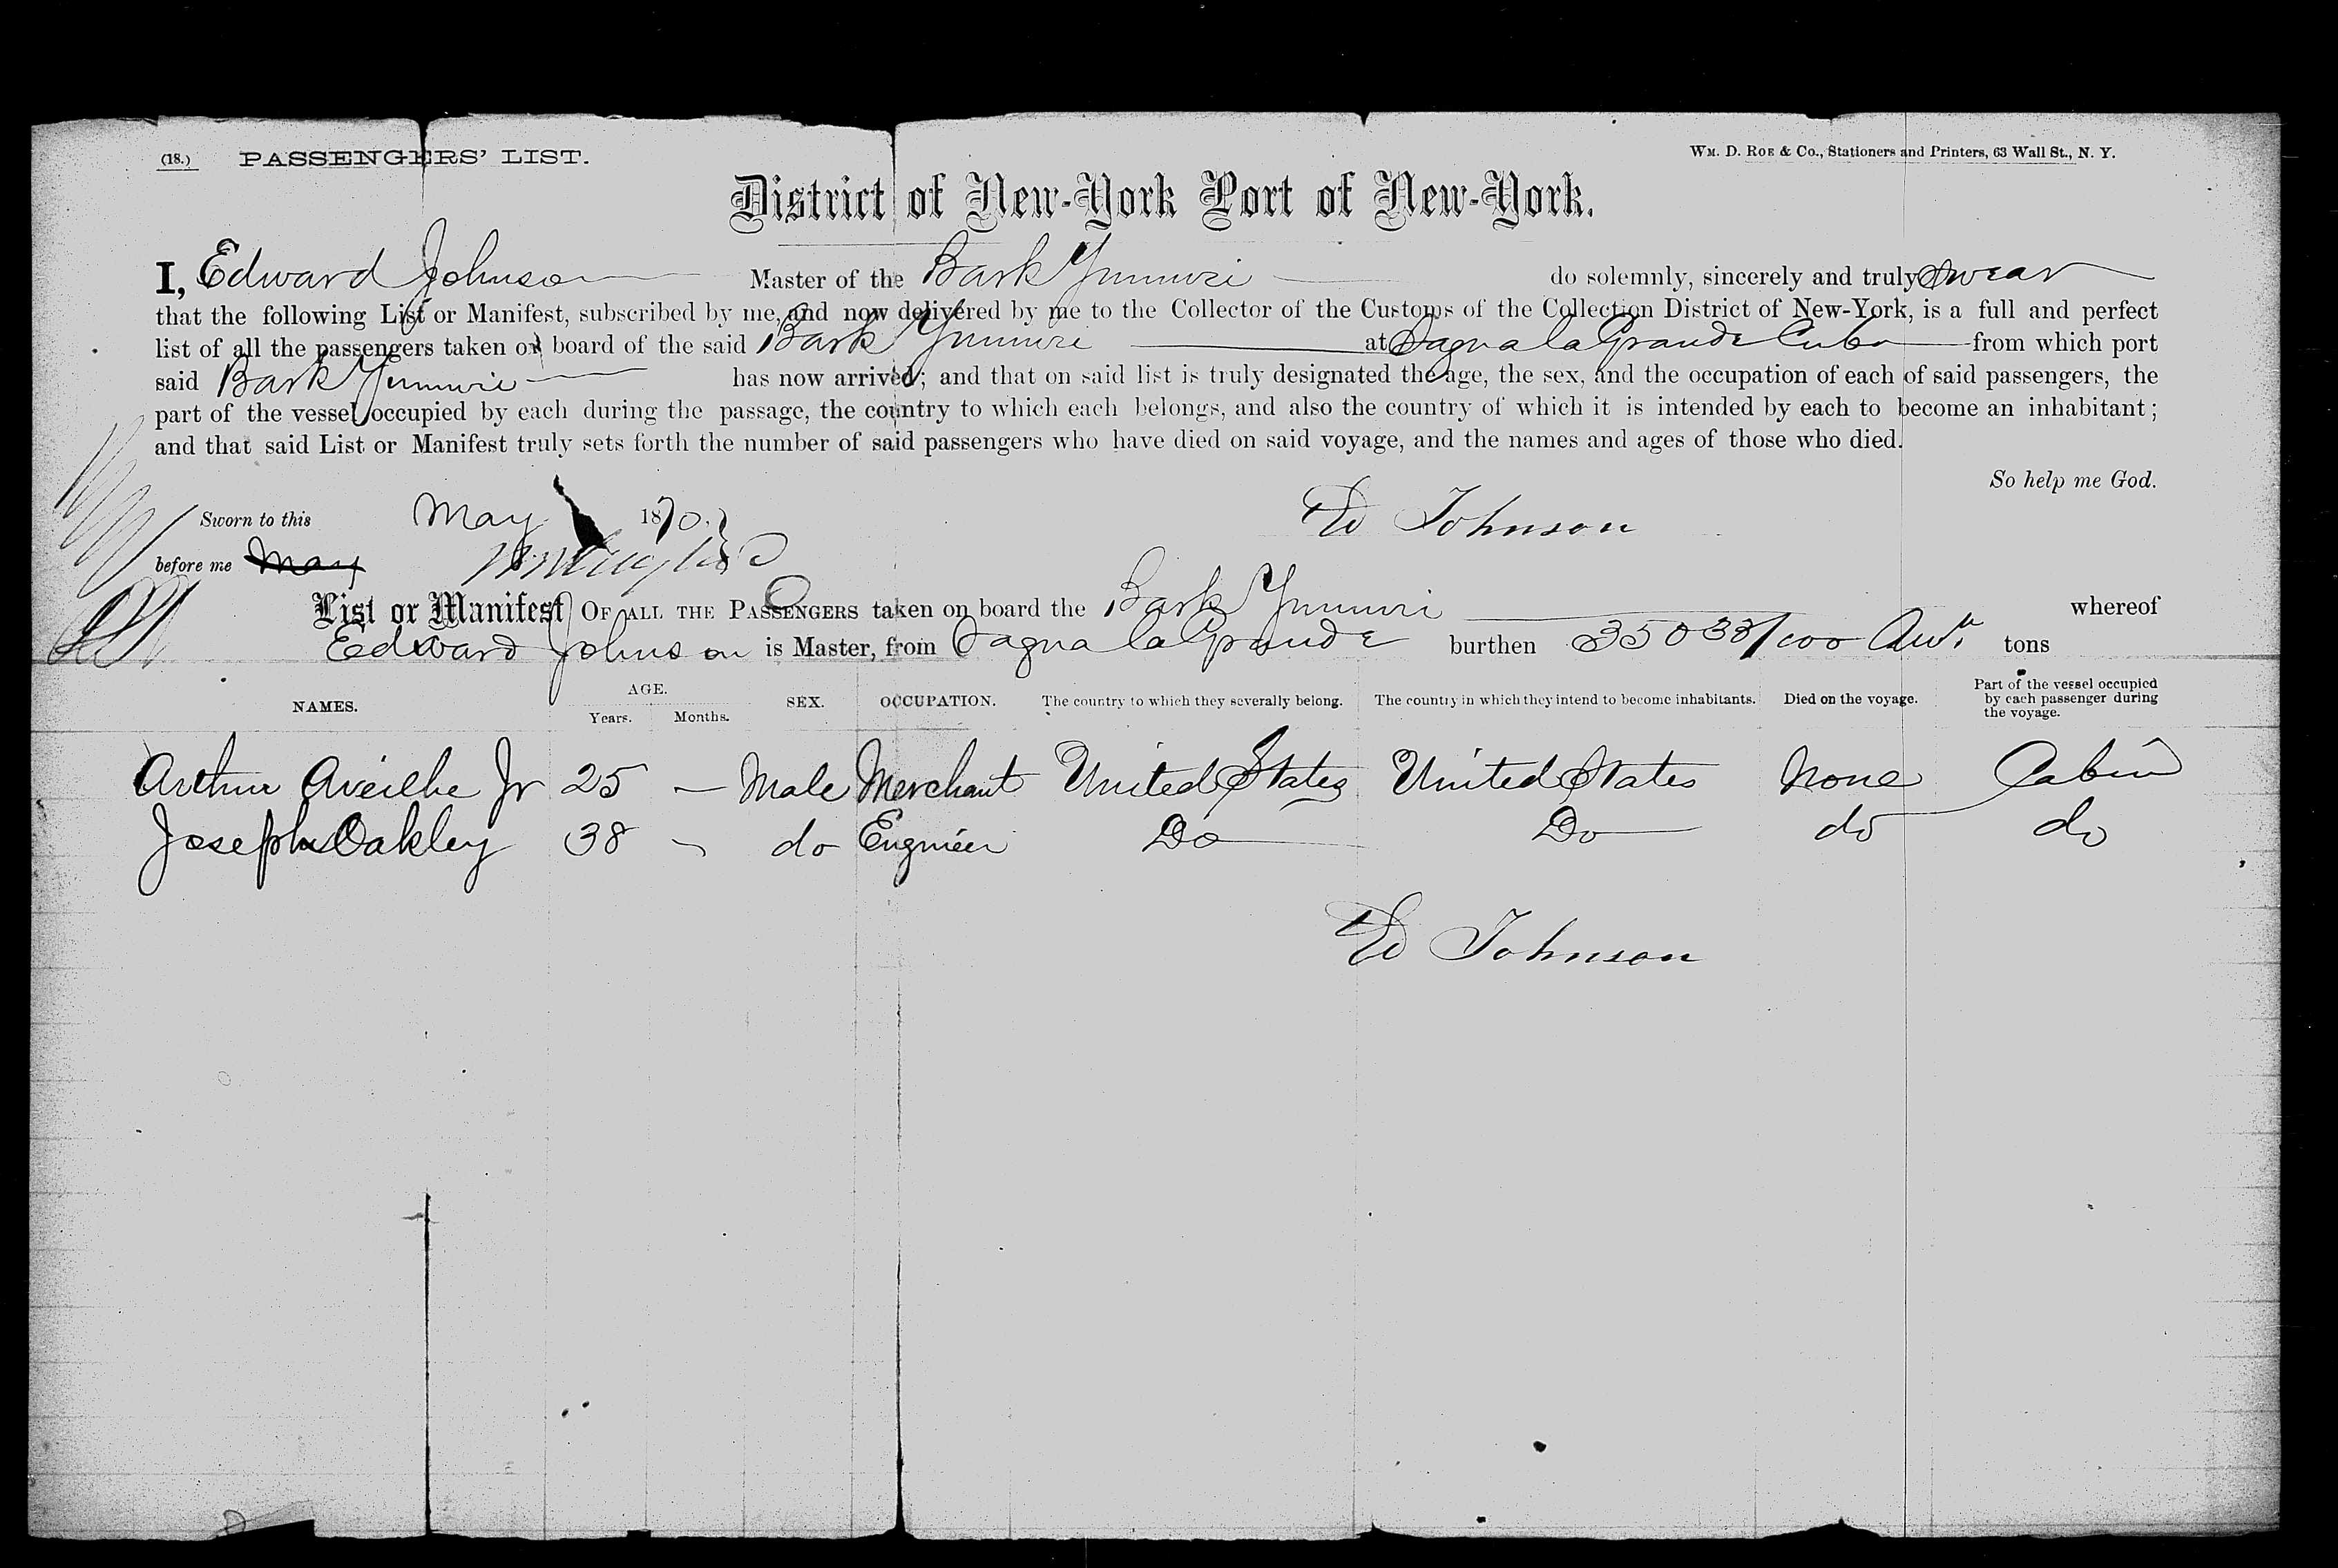 (18.) PASSENGERS' LIST.
WM. D. ROE & Co., Stationers and Printers, 63 Wall St., N. Y.
District of New-York Port of New-York.
I, Edward Johnson Master of the Bark Yumuri do solemnly, sincerely and truly swear
that the following List or Manifest, subscribed by me, and now delivered by me to the Collector of the Customs of the Collection District of New-York, is a full and perfect
list of all the passengers taken on board of the said Bark Yumuri at Sagua la Grande Cuba from which port
said Bark Yumurie has now arrived; and that on said list is truly designated the age, the sex, and the occupation of each of said passengers, the
part of the vessel occupied by each during the passage, the country to which each belongs, and also the country of which it is intended by each to become an inhabitant;
and that said List or Manifest truly sets forth the number of said passengers who have died on said voyage, and the names and ages of those who died.
So help me God.
Sworn to this May 1870. Ed Johnson
before me May
List or Manifest OF ALL THE PASSENGERS taken on board the Bark Yumuri whereof
Edward Johnson is Master, from Sagua la Grande burthen 350 33/100 tons
NAMES. AGE. Years. Months. SEX. OCCUPATION. The country to which they severally belong. The country in which they intend to become inhabitants. Died on the voyage. Part of the vessel occupied by each passenger during the voyage.
Arthur Aveilhe Jr 25 — Male Merchant United States United States None Cabin
Joseph Oakley 38 - do Engineer Do Do do do
Ed Johnson